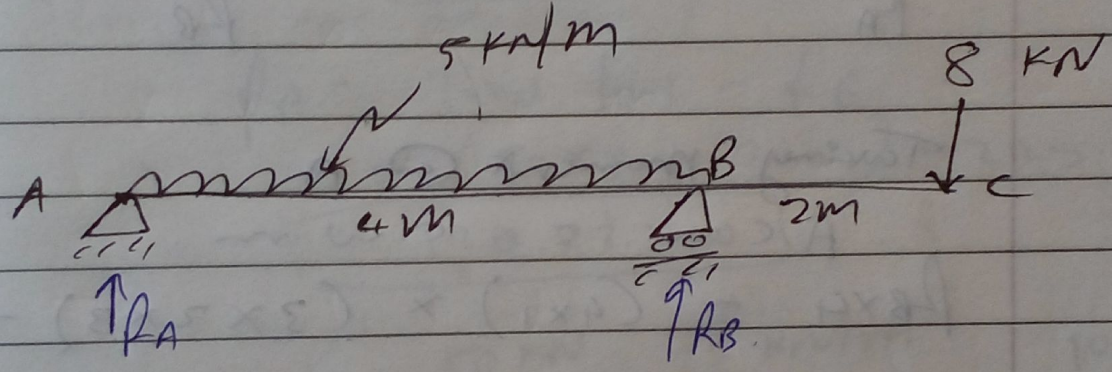 5 KN/M
8 KN
A
B
C
4M
2M
RA
RB